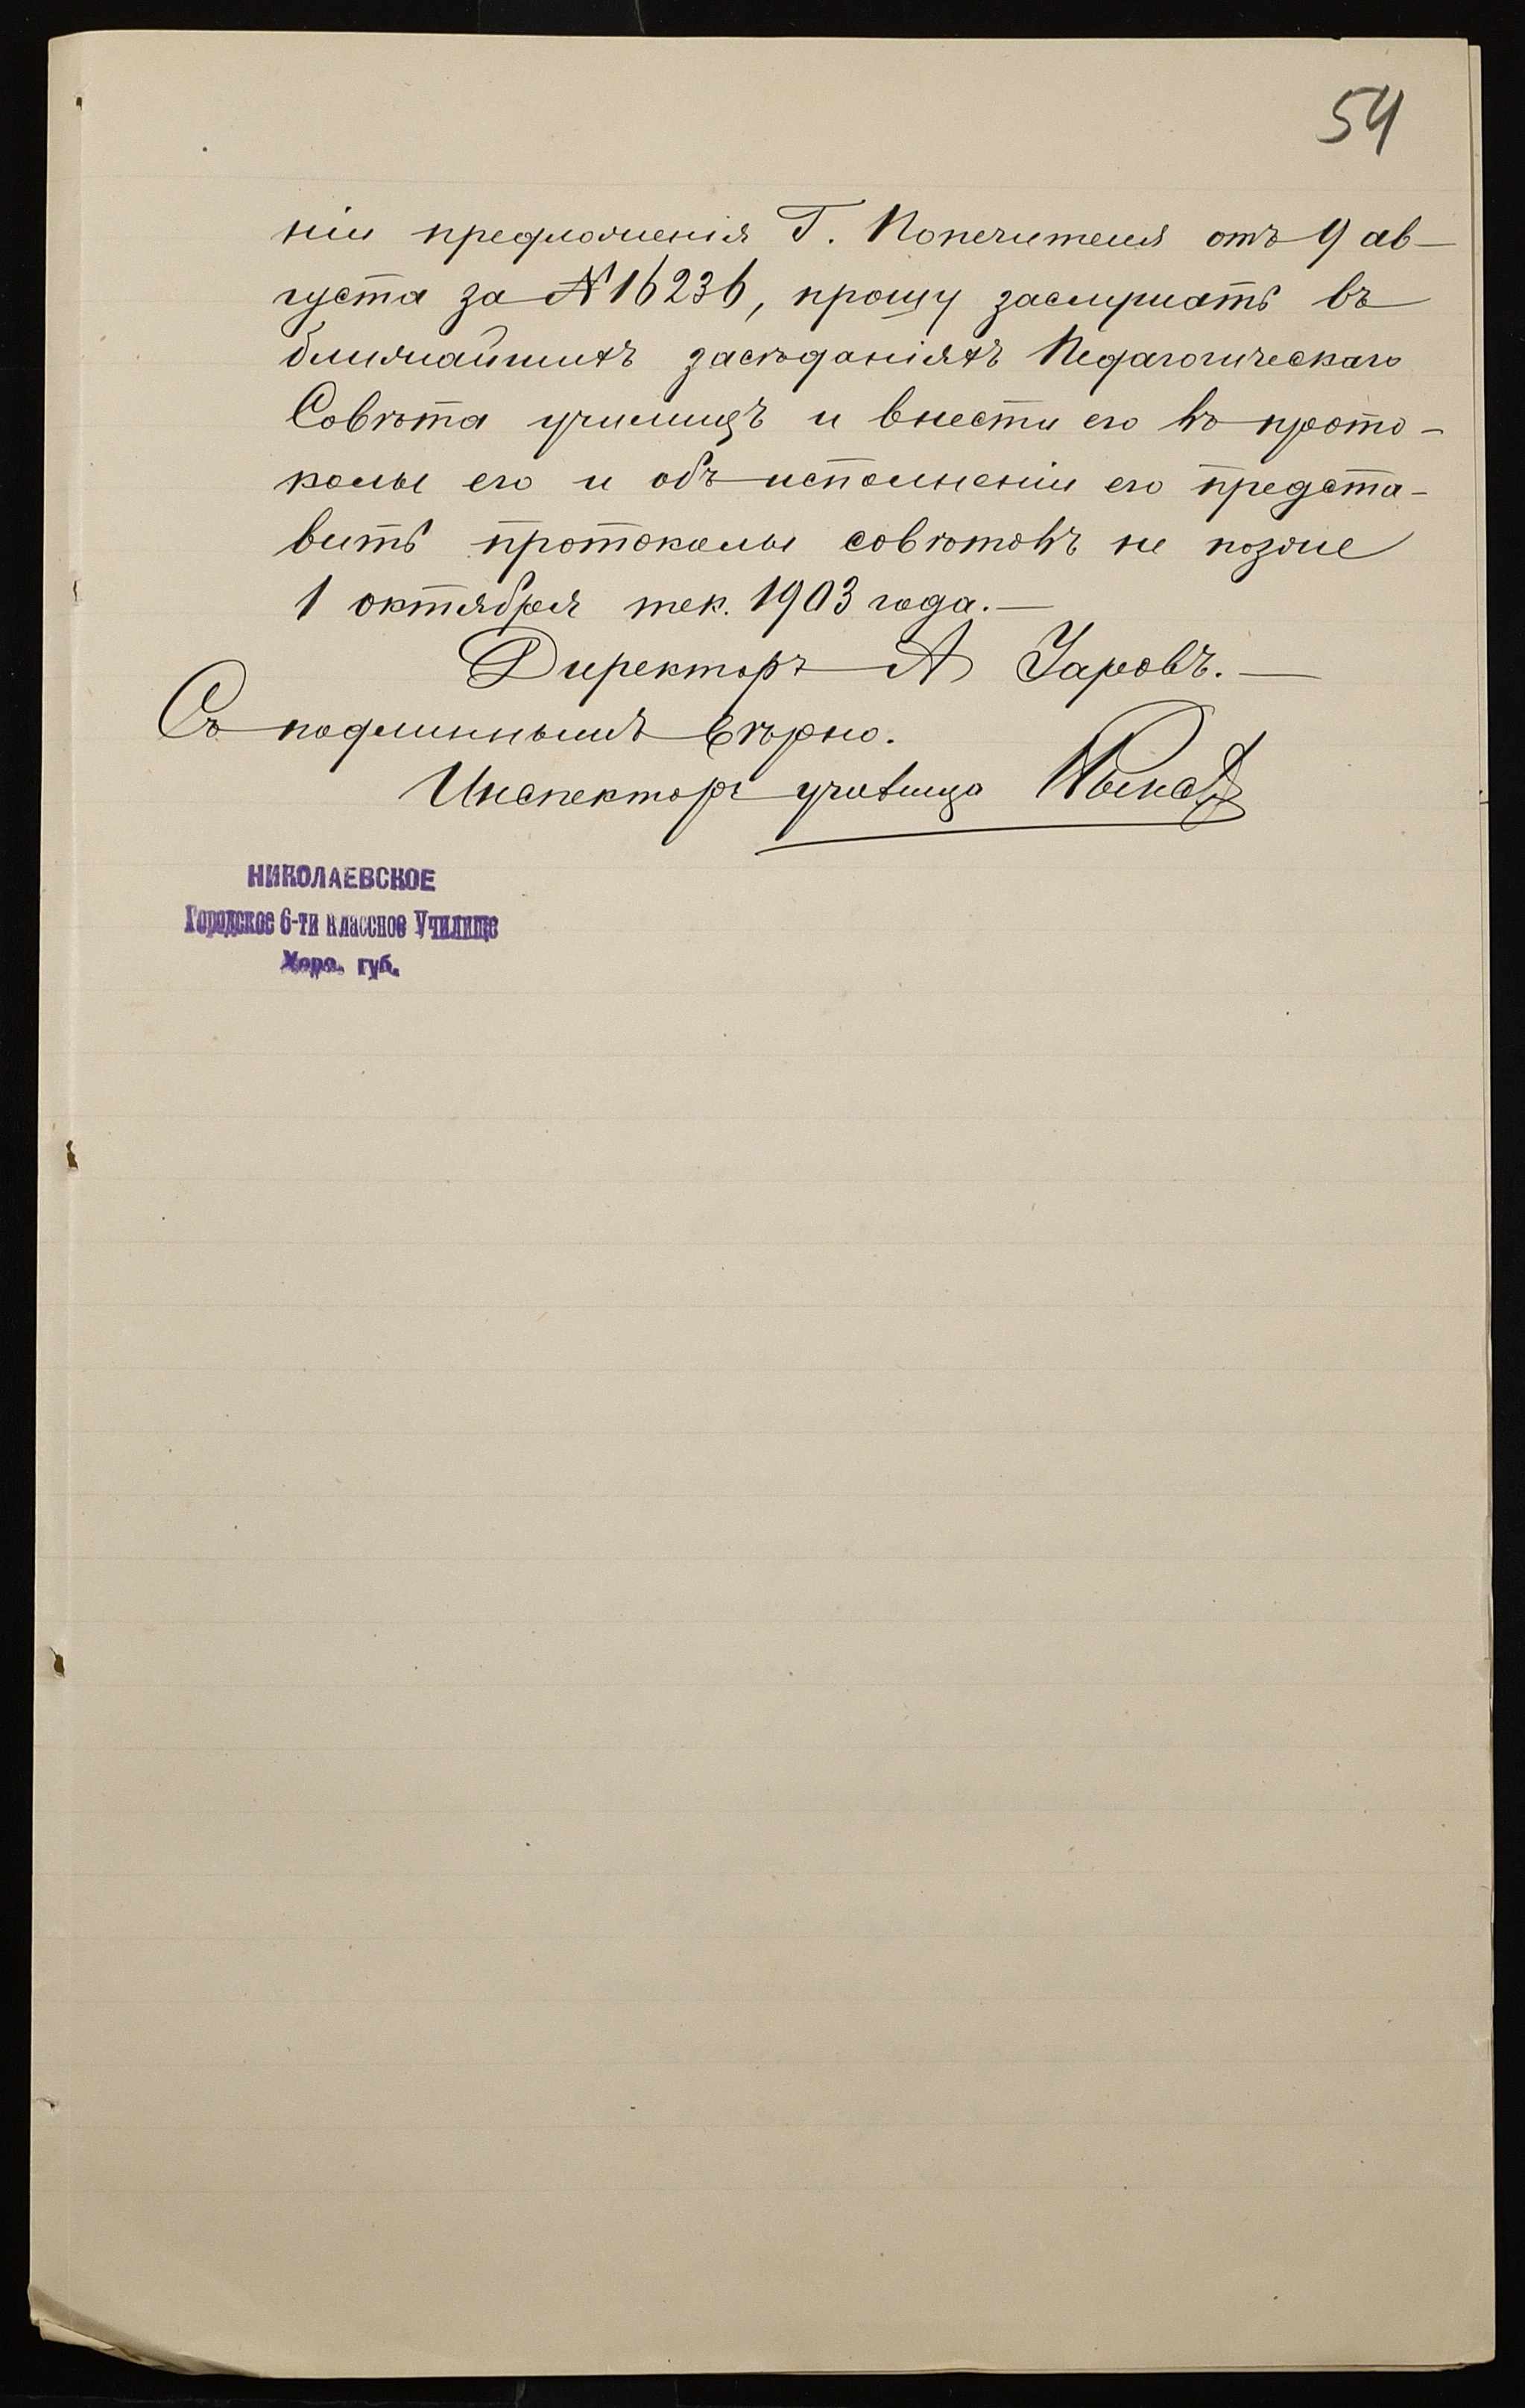 54
ніи предложенія Г. Попечителя отъ 9 ав-
густа за № 16236, прошу заслушать въ
ближайшихъ засѣданіяхъ Педагогическаго
Совѣта училищъ и внести его въ прото-
колы его и объ исполненіи его предста-
вить протоколы совѣтовъ не позже
1 октября тек. 1903 года.—
Директоръ А
Съ подлиннымъ вѣрно.
Инспекторъ училища
НИКОЛАЕВСКОЕ
Городское 6-ти классное Училище
Херс. губ.